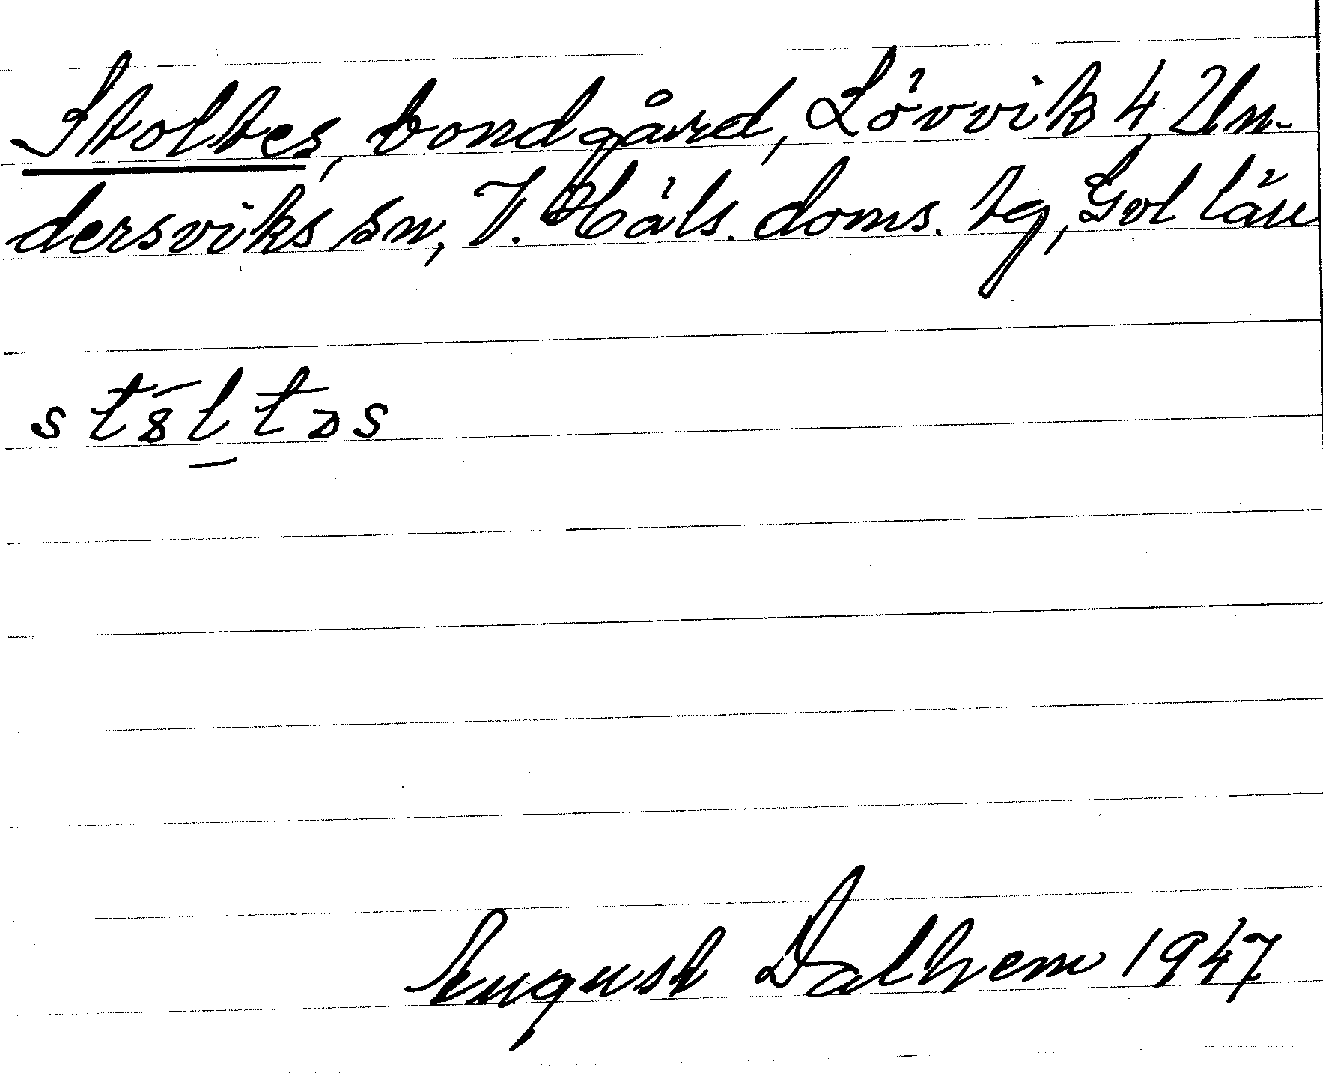 Stoltes, bondgård, Lövvik 4, Un-
dersviks sn, V. Häls. doms. tg, Gvl län
August Dalhem 1947